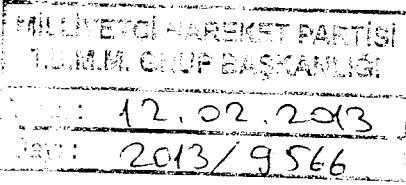 MİLLİYETÇİ HAREKET PARTİSİ
T.B.M.M. GRUP BAŞKANLIĞI
: 12.02.2013
: 2013/9566